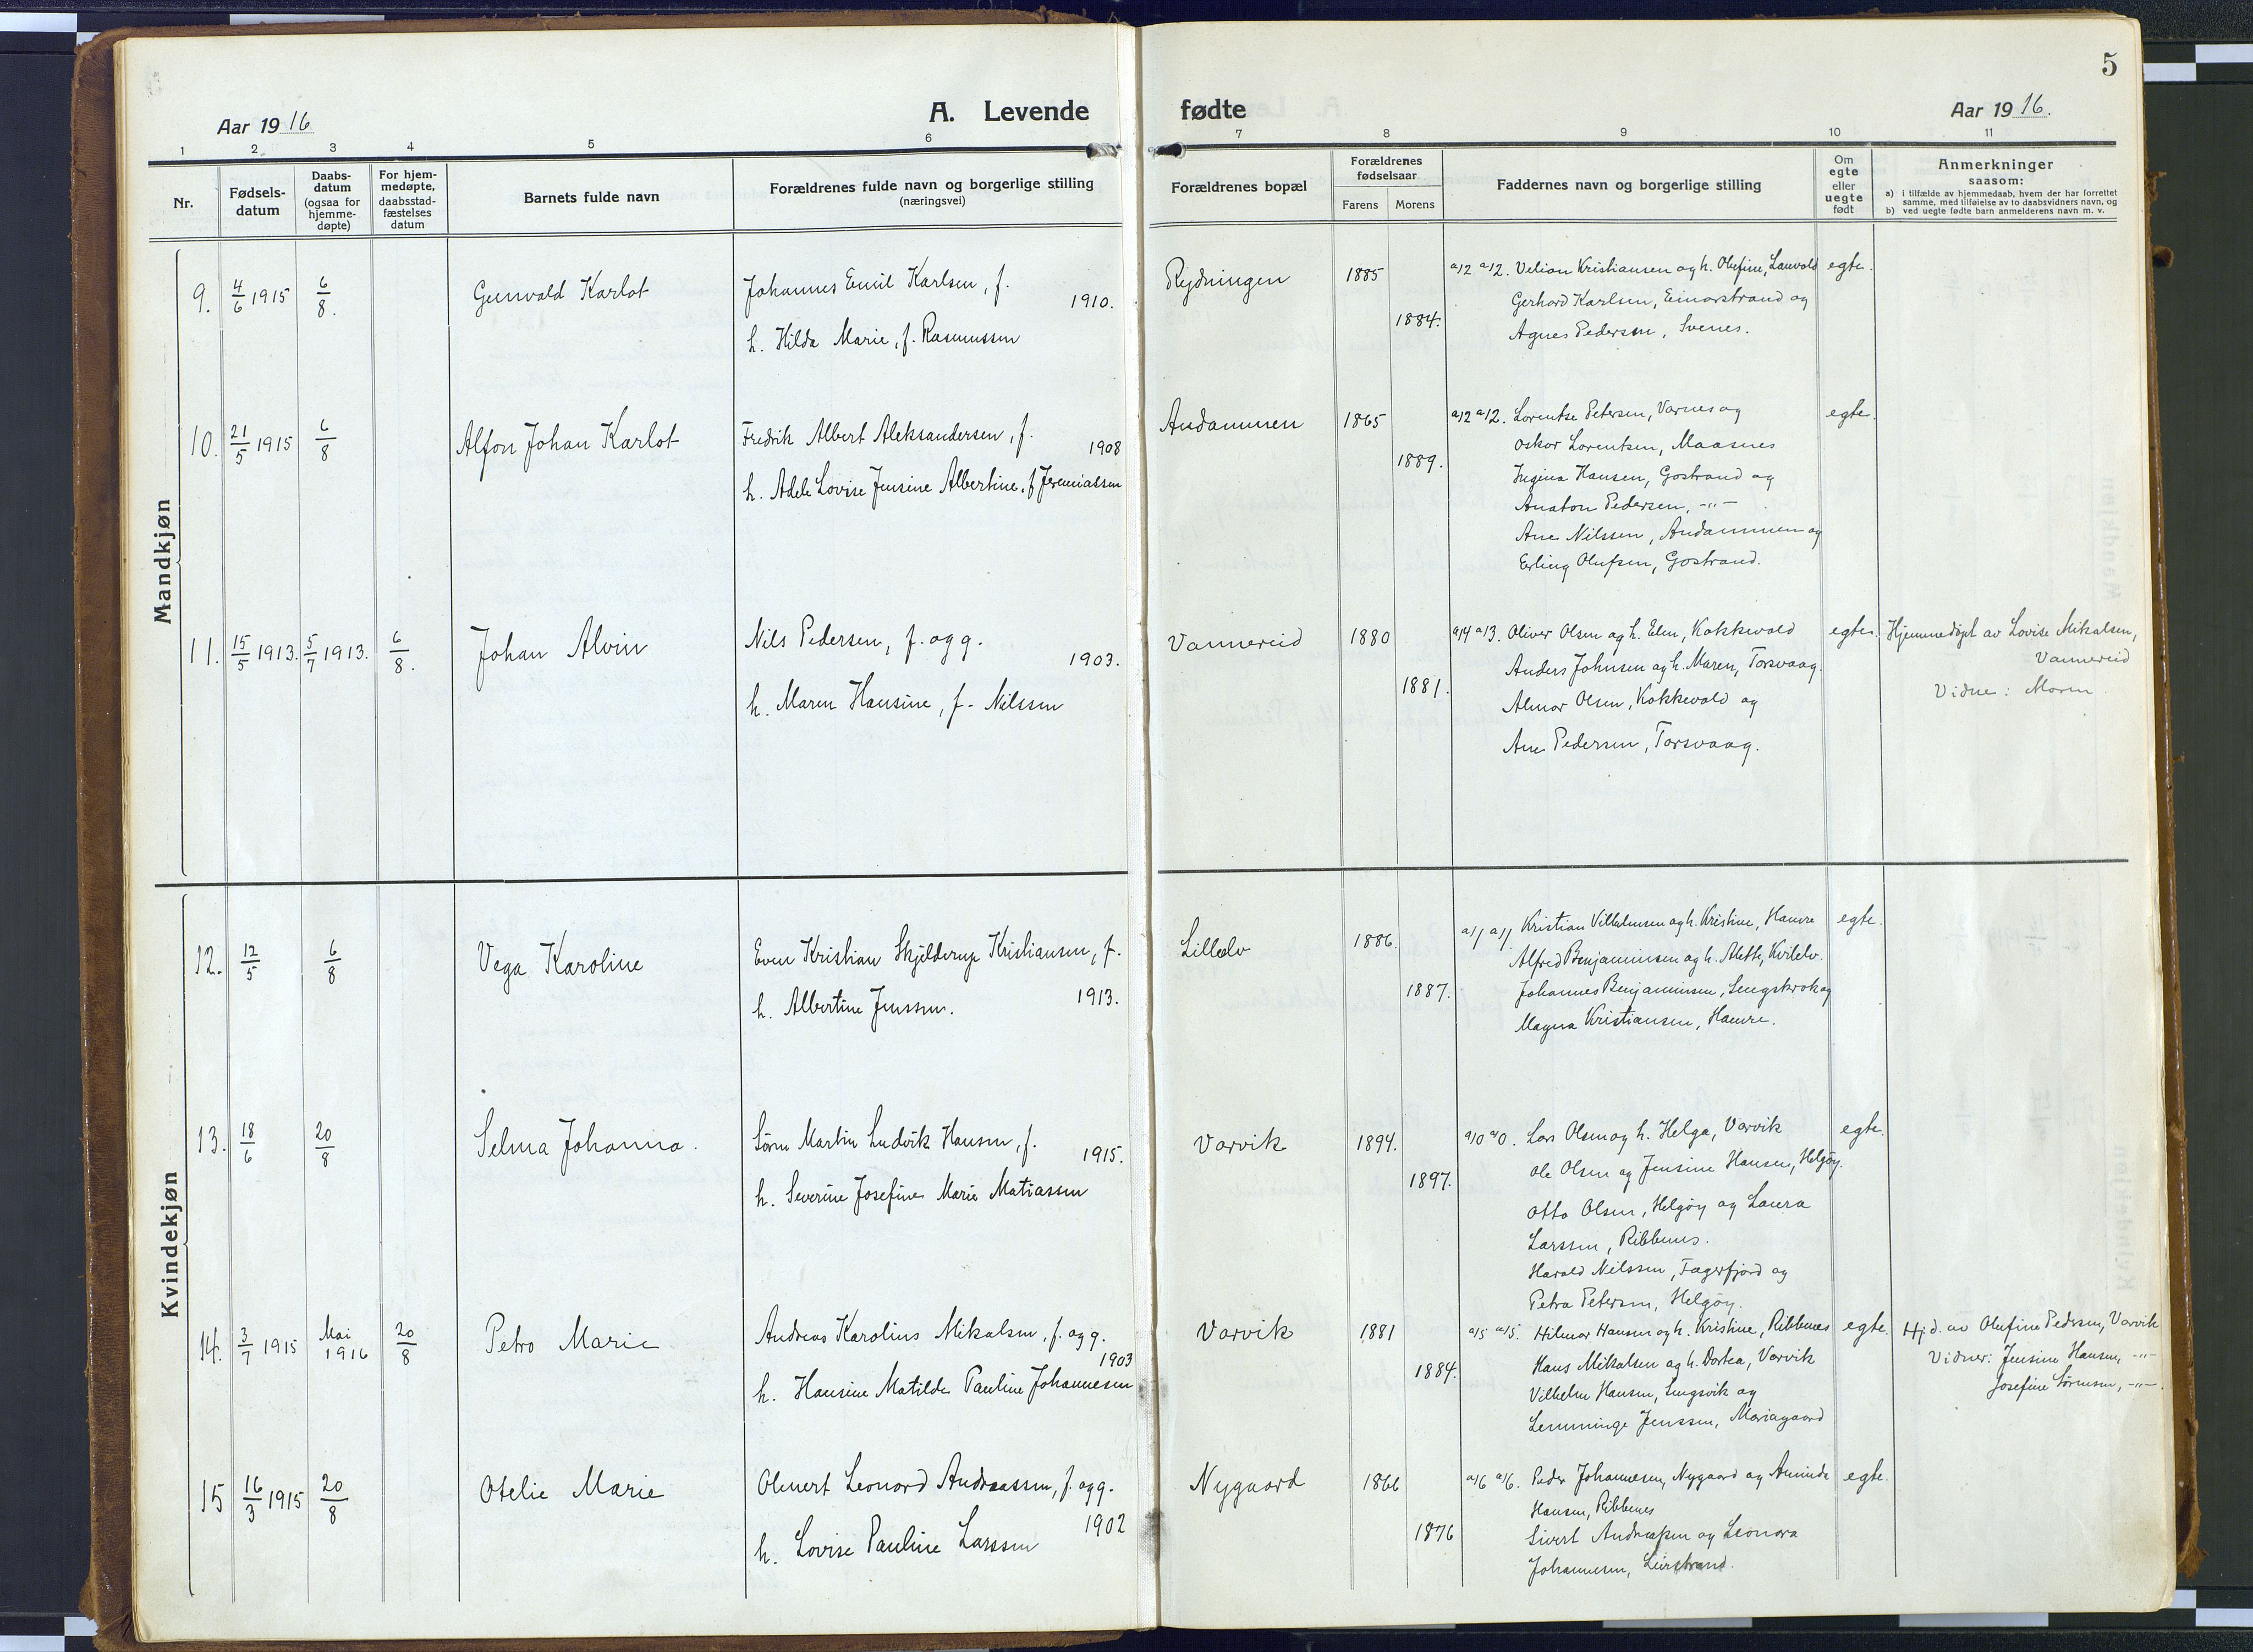 5
Aar 1916
A. Levende fødte
Aar 1916.
1 2 3 4 5 6 7 8 9 10 11
Nr.
Fødsels-
datum
Daabs-
datum
(ogsaa for
hjemme-
døpte)
For hjem-
medøpte,
daabsstad-
fæstelses
datum
Barnets fulde navn
Forældrenes fulde navn og borgerlige stilling
(næringsvei)
Forældrenes bopæl
Forældrenes
fødselsaar
Farens Morens
Faddernes navn og borgerlige stilling
Om
egte
eller
uegte
født
Anmerkninger
saasom:
a) i tilfælde av hjemmedaab, hvem der har forrettet
samme, med tilføielse av to daabsvidners navn, og
b) ved uegte fødte barn anmelderens navn m. v.
Mandkjøn
9. 4/6 1915 6/8. Gunvald Karlot
Johannes Emil Karlsen, f.
1910.
h. Hilda Marie, f. Rasmussen
Rydningen 1885
1884.
a/2 a/2. Velion Kristiansen og h. Olufine, Lanvold egte.
Gerhard Karlsen, Einarstrand og
Agnes Pedersen, Svenes.
10. 21/5 1915 6/8 Alfon Johan Karlot
Fredrik Albert Aleksandersen, f.
1908
h. Adele Lovise Jensine Albertine, f Jeremiassen
Andammen 1865
1889.
a/2 a/2. Lorentse Petersen, Varnes og egte.
Oskar Lorentsen, Maasnes
Ingina Hansen, Gostrand og
Anaton Pedersen, -"-
Ane Nilssen, Andammen og
Erling Olufsen, Gostrand.
11. 15/5 1913. 5/7 1913. 6/8. Johan Alvin
Nils Pedersen, f. og g.
1903.
h. Maren Hansine, f. Nilssen
Vannereid 1880
1881.
a/4 a/3. Oliver Olsen og h. Elen, Kokkevold egte.
Anders Johnsen og h. Maren, Torsvaag.
Almar Olsen, Kokkevold og
Ane Pedersen, Torsvaag.
Hjemmedøpt av Lovise Mikalsen,
Vannereid
Vidne: Moren
Kvindekjøn
12. 12/5 6/8 Vega Karoline
Even Kristian Skjelderup Kristiansen, f.
1913.
h. Albertine Jenssen.
Lilleelv 1886.
1887.
a/1 a/1 Kristian Vilhelmsen og h. Kristine, Hamre egte.
Alfred Benjaminsen og h. Alette, Kvilelv.
Johannes Benjaminsen, Lengskrok og
Magna Kristiansen, Hamre.
13. 18/6 20/8 Selma Johanna.
Sørn Martin Ludvik Hansen, f.
1915.
h. Severine Josefine Marie Matiassen
Vorvik 1894.
1897.
a/0 a/0. Lars Olsen og h. Helga, Vorvik egte.
Ole Olsen og Jensine Hansen, Helgøy.
Otto Olsen, Helgøy og Laura
Larssen, Ribbenes.
Harald Nilssen, Fagerfjord og
Petra Petersen, Helgøy.
14. 3/7 1915 Mai 1916 20/8 Petro Marie
Andreas Karolius Mikalsen, f. og g.
1903
h. Hansine Matilde Pauline Johannesen
Vorvik 1881
1884.
a/5 a/5. Hilmar Hansen og h. Kristine, Ribbenes egte.
Hans Mikalsen og h. Dortea, Vorvik
Vilhelm Hansen, Lengsvik og
Lemminge Jenssen, Mariagaard
Hj.d. av Olufine Pedersen, Vorvik
Vidner: Jensine Hansen, -"-
Josefine Sørensen, -"-.
15 16/3 1915 20/8 Otelie Marie
Olmert Leonard Andreassen, f. og g.
1902
h. Lovise Pauline Larssen
Nygaard 1866
1876
a/6 a/6. Peder Johannesen, Nygaard og Aminda egte.
Hansen, Ribbenes
Sivert Andreassen og Leonora
Johannesen, Leirstrand.